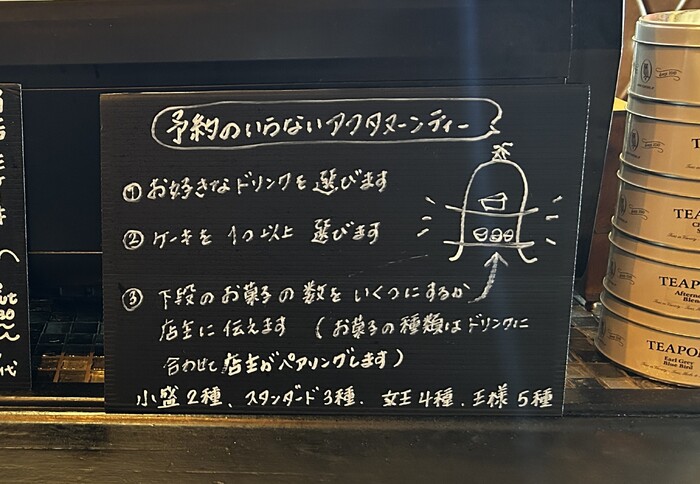 予約のいらないアフタヌーンティー
① お好きなドリンクを選びます
② ケーキを1つ以上 選びます
③ 下段のお菓子の数をいくつにするか
店主に伝えます (お菓子の種類はドリンクに
合わせて店主がペアリングします)
小盛2種、スタンダード3種、女王4種、王様5種
TEAPO
Earl Grey
Blue Bird
TEAPO
Aftern
Blen
TEA